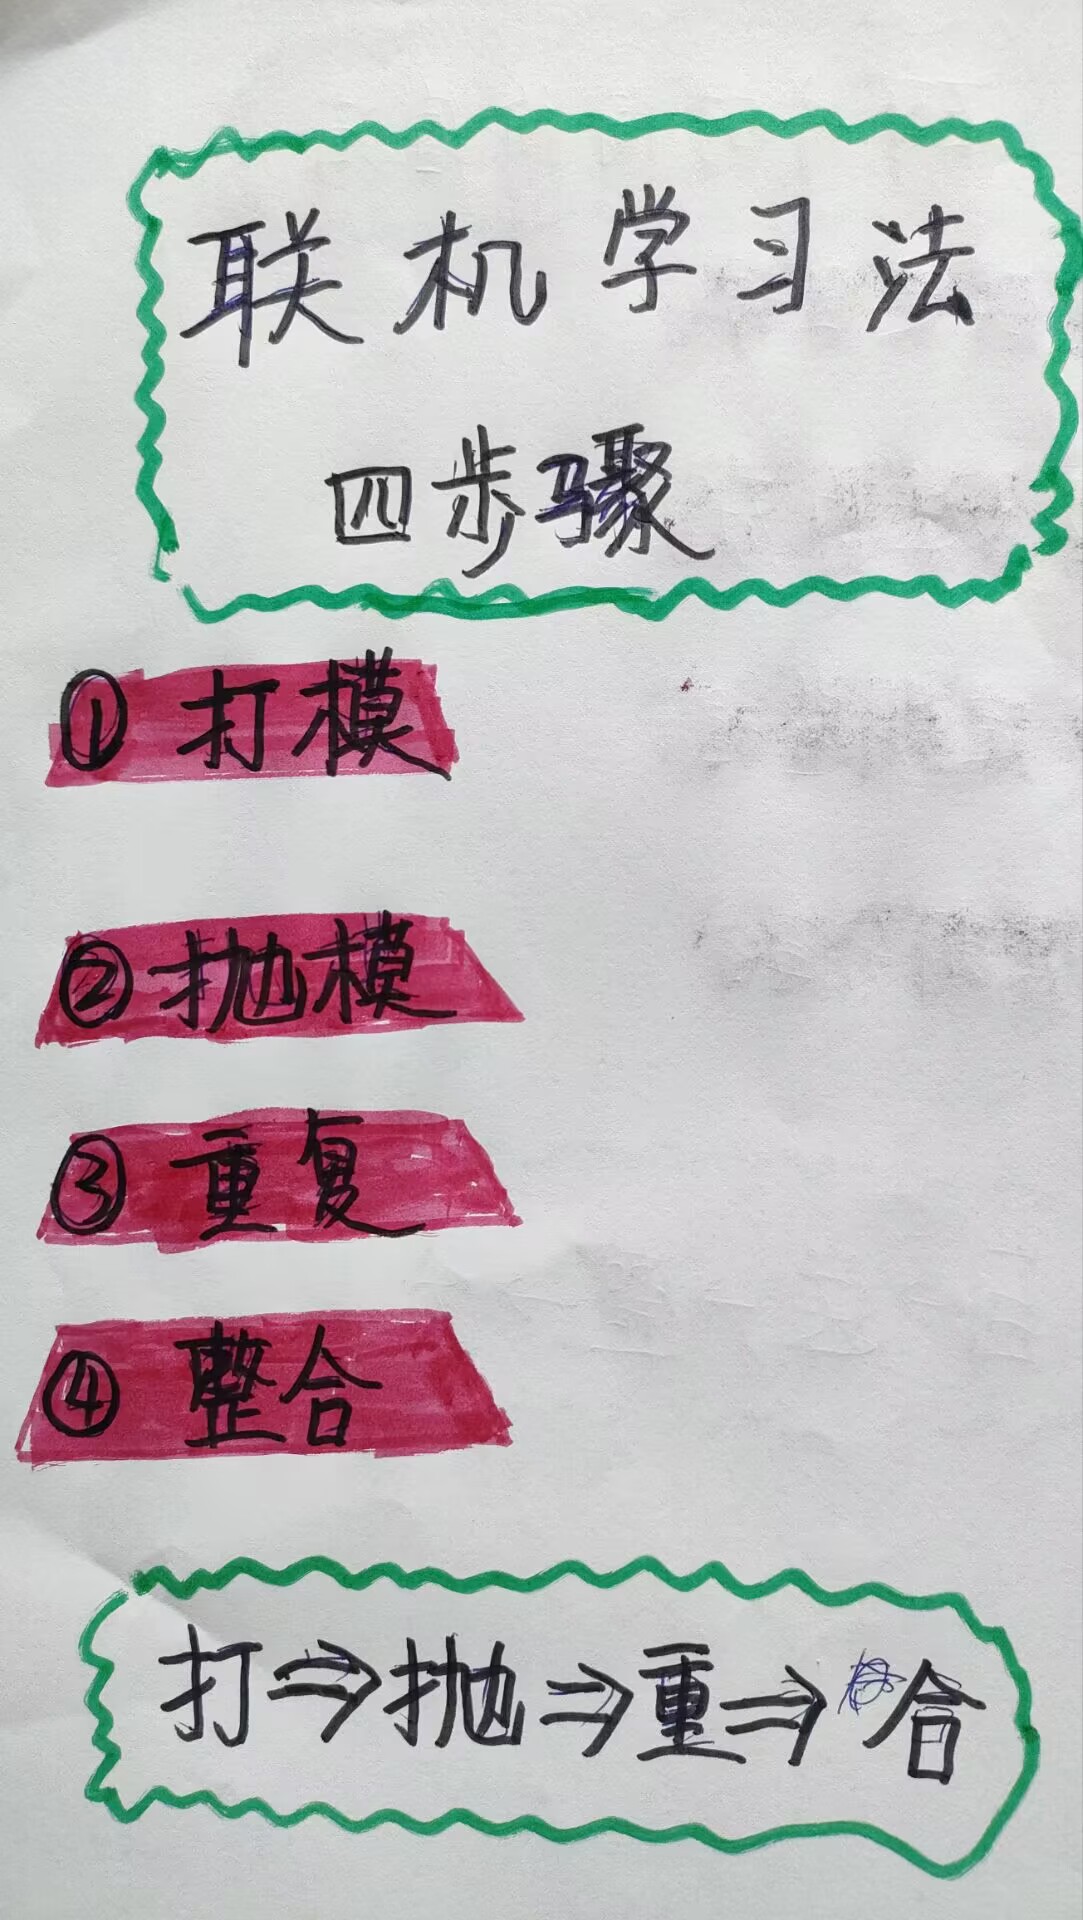 联机学习法
四步骤
① 打模
② 抛模
③ 重复
④ 整合
打⇒抛⇒重⇒合